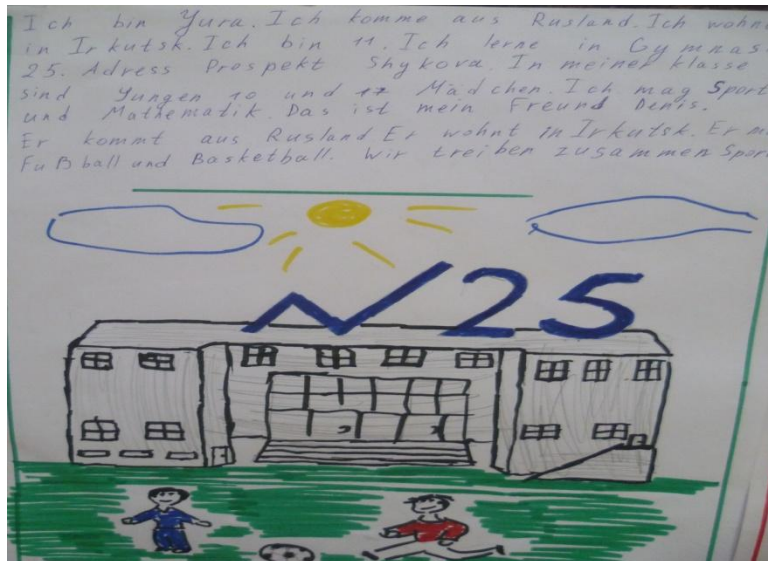 Ich bin Yura. Ich komme aus Rusland. Ich wohne
in Irkutsk. Ich bin 11. Ich lerne in Gymnas
25. Adress Prospekt Shykova. In meiner klasse
sind Yungen 10 und 17 Mädchen. Ich mag Sport
und Mathematik. Das ist mein Freund Denis.
Er kommt aus Rusland Er wohnt in Irkutsk. Er m
Fußball und Basketball. Wir treiben zusammen Spor
N25